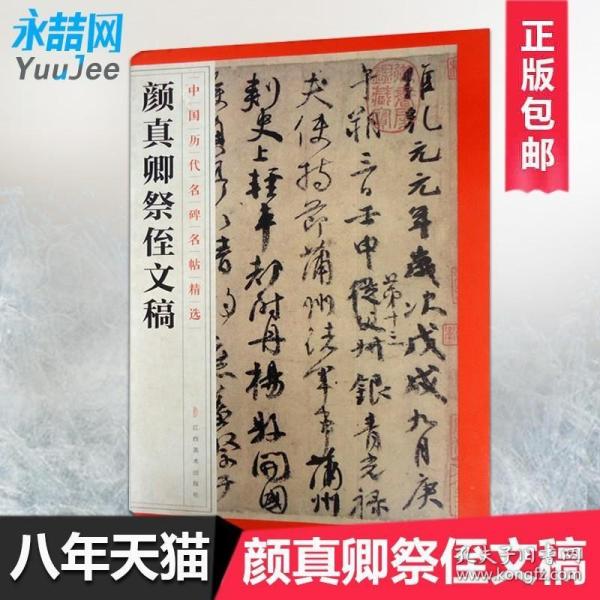 永喆网
YuuJee
正版包邮
颜真卿祭侄文稿
中国历代名碑名帖精选
江西美术出版社
維乾元元年歲次戊戌九月庚
午朔三日壬申從父
第十三
州銀青光祿
夫使持節蒲州諸軍事蒲州
刺史上輕車都尉丹楊縣開國
八年天猫
颜真卿祭侄文稿
孔夫子旧书网
www.kongfz.com